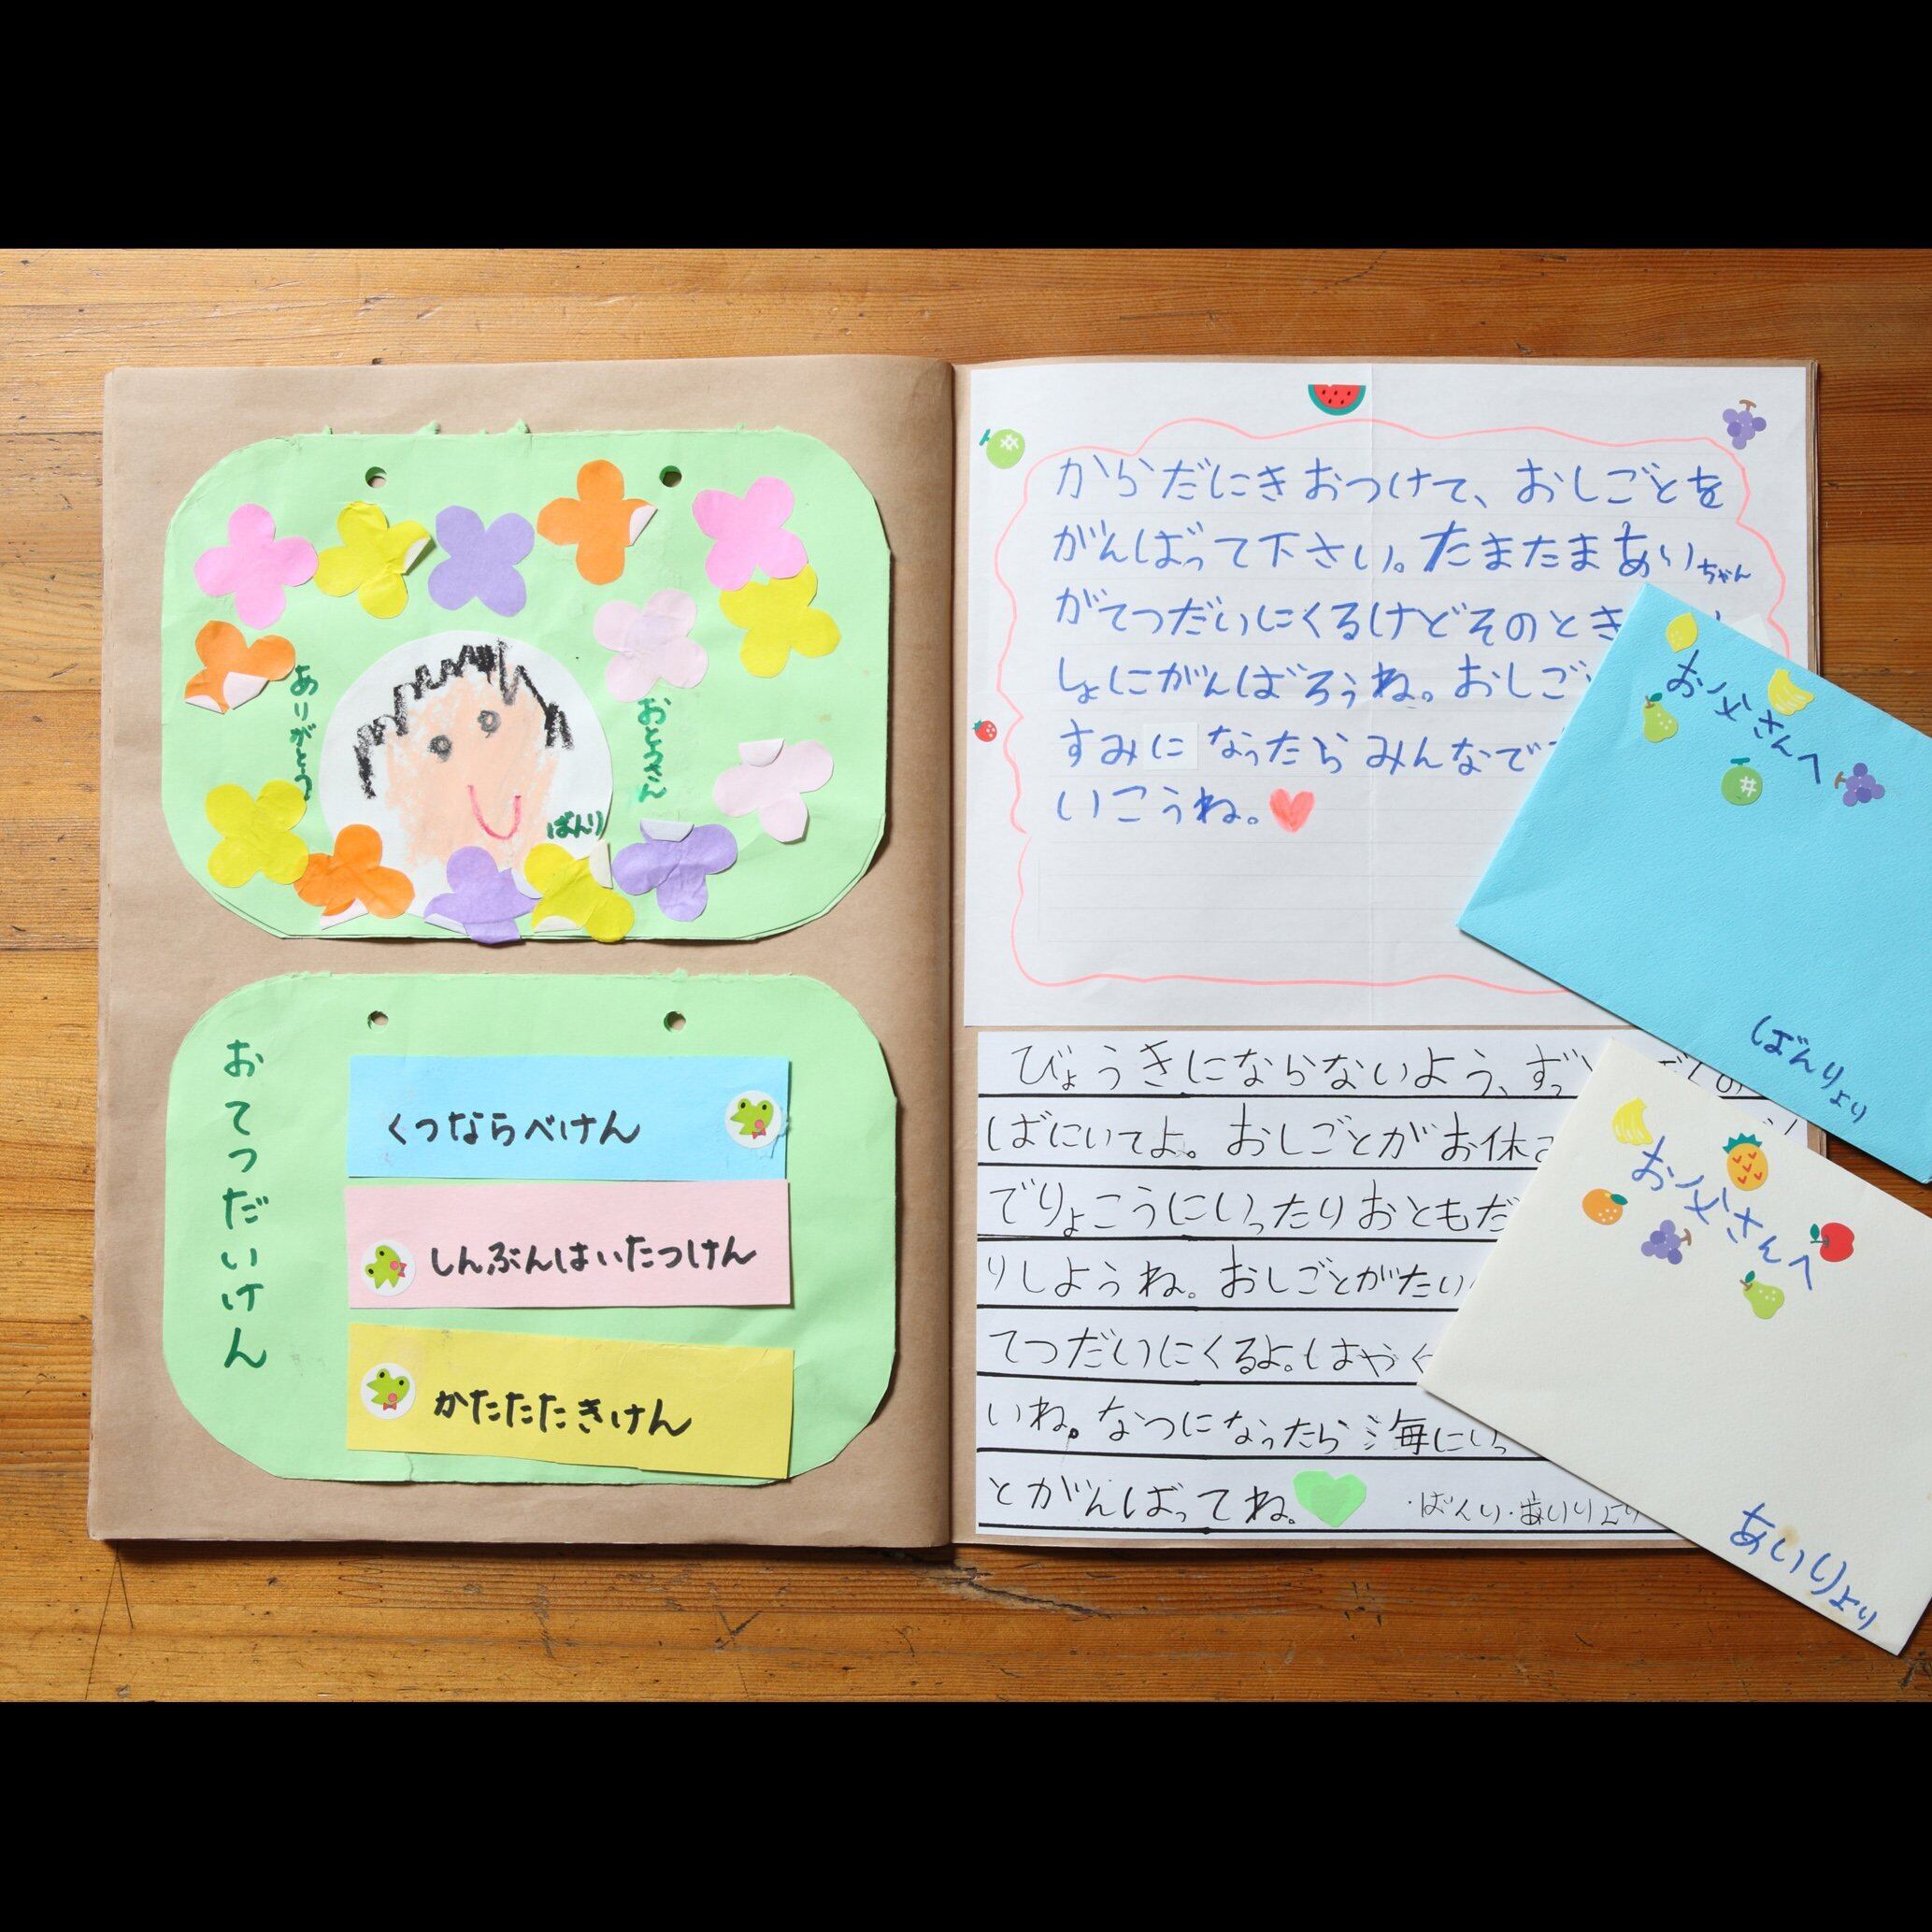 おとうさん
ありがとう
ばんり
おてつだいけん
くつならべけん
しんぶんはいたつけん
かたたたきけん
からだにきおつけて、おしごとを
がんばって下さい。たまたまあいちゃん
がてつだいにくるけどそのとき
しょにがんばろうね。おしご
すみになったらみんなで
いこうね。
びょうきにならないよう、ずっ
ばにいてよ。おしごとがお休
でりょこうにいったりおともだ
りしようね。おしごとがたい
てつだいにくるよ。はやく
いね。なつになったら海にいっ
とがんばってね。
・ばんり・あいりより
お父さんへ
ばんりより
お父さんへ
あいりより